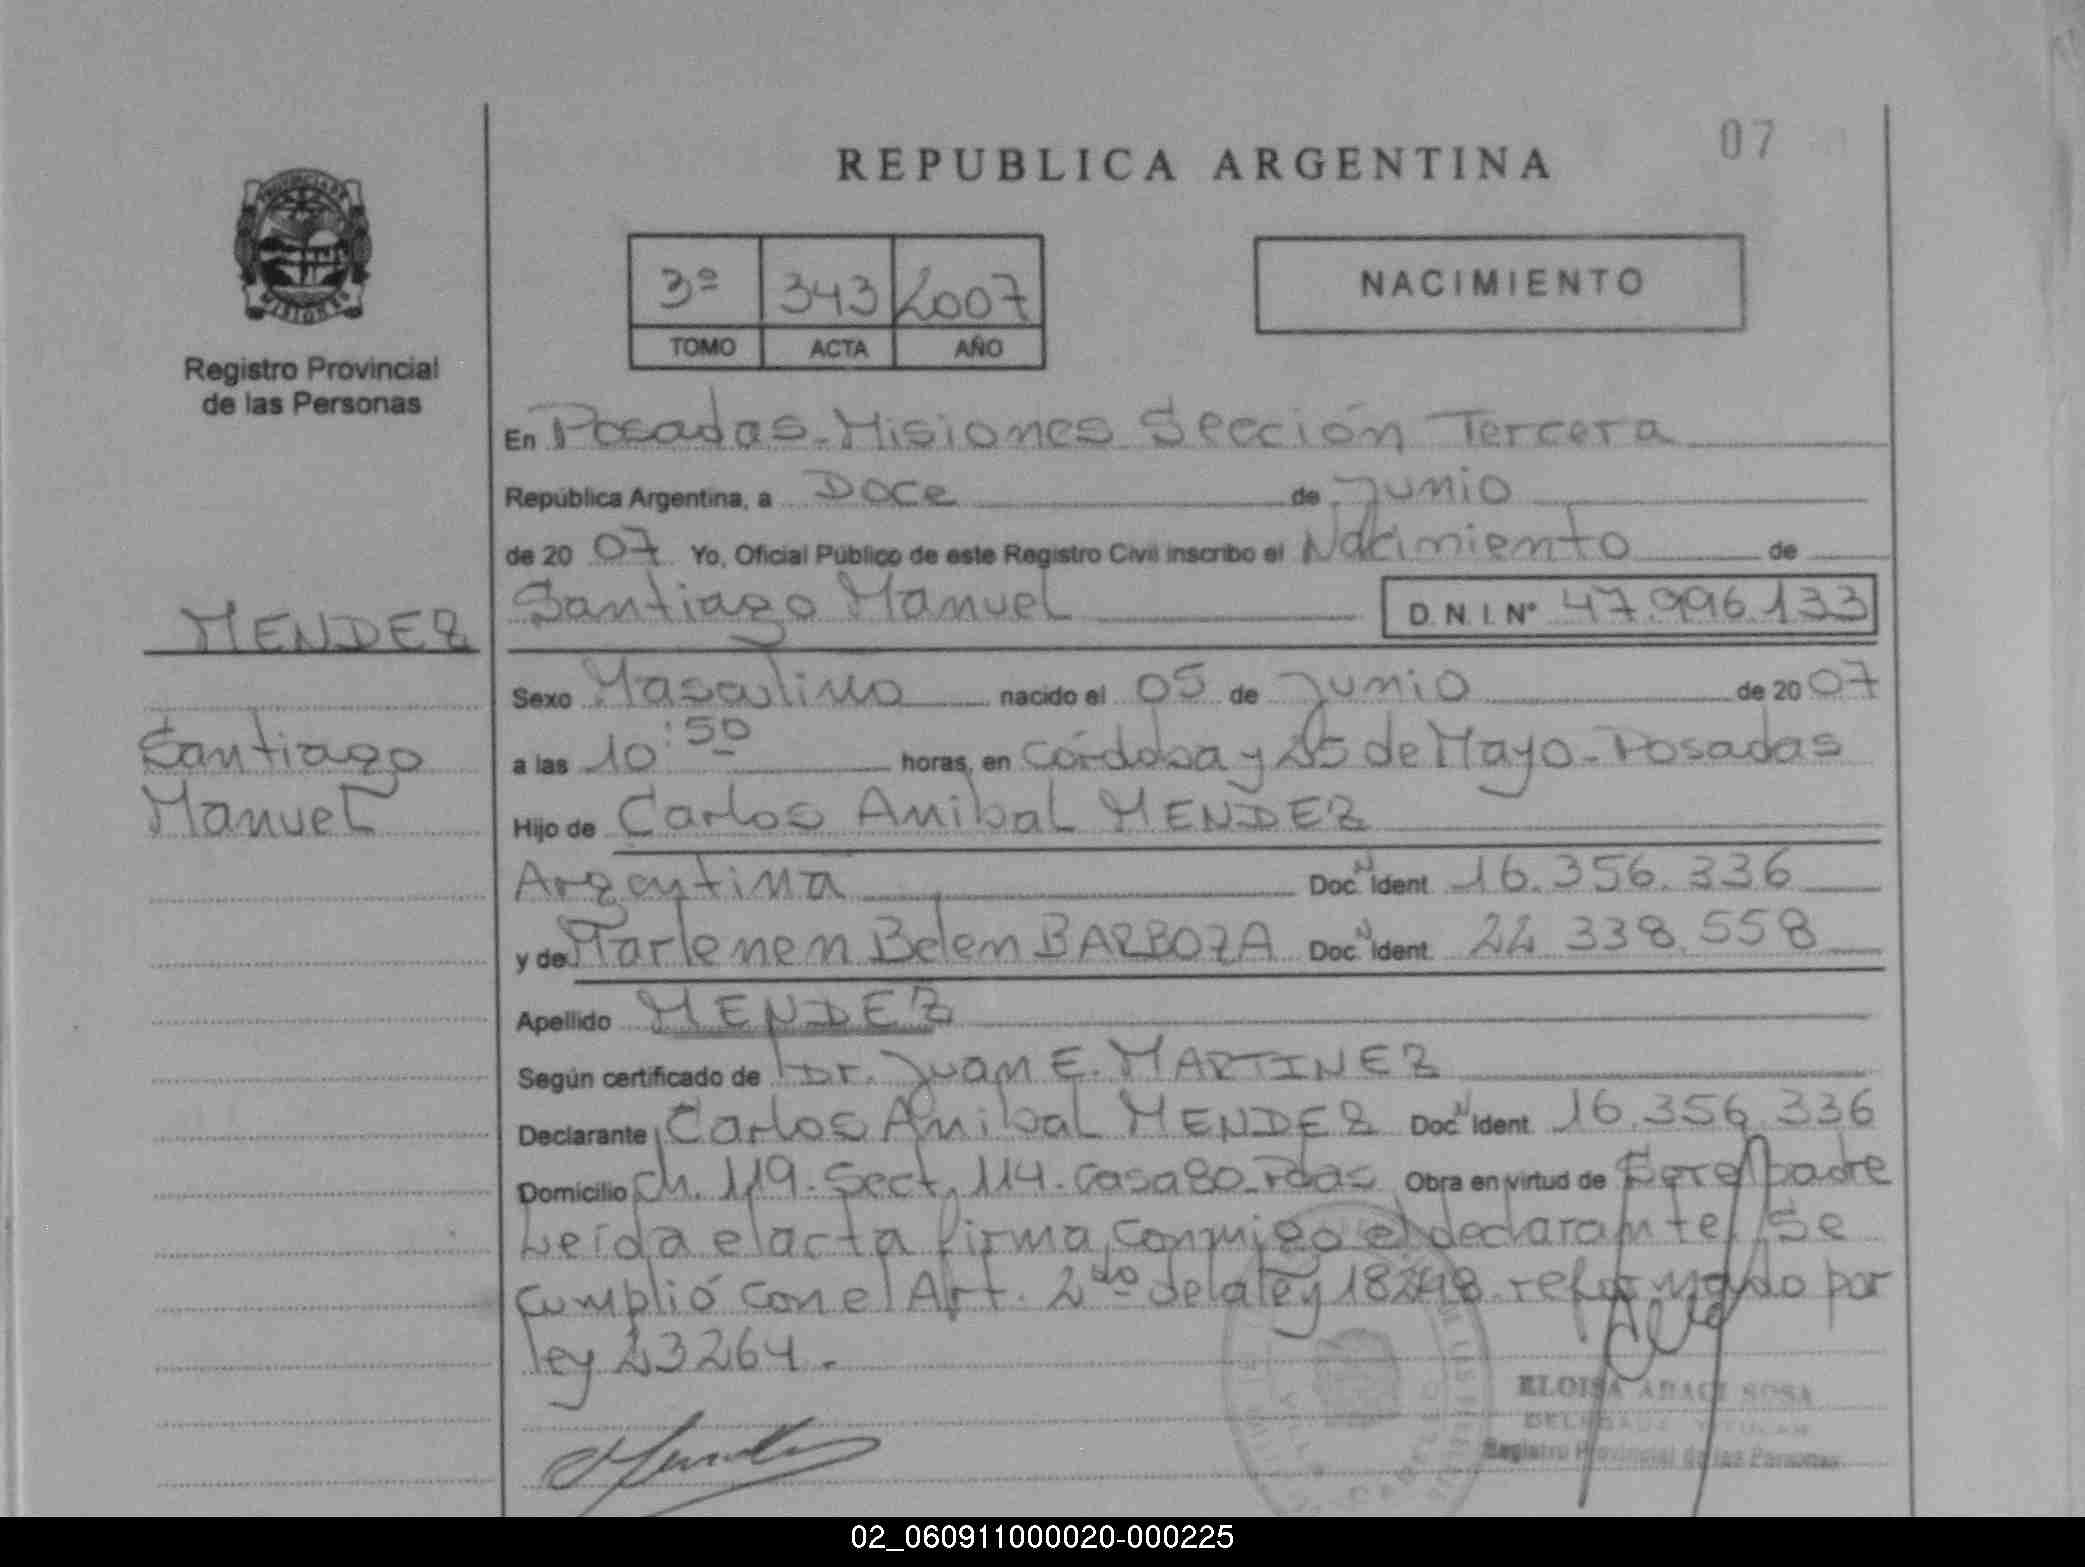 REPUBLICA ARGENTINA
07
PROVINCIA DE
MISIONES
Registro Provincial
de las Personas
3º 343 2007
TOMO ACTA AÑO
NACIMIENTO
En Posadas-Misiones Sección Tercera
República Argentina, a Doce de Junio
de 2007 Yo, Oficial Público de este Registro Civil inscribo el Nacimiento de
Santiago Manuel D.N.I.Nº 47.996.133
MENDEZ
Santiago
Manuel
Sexo Masculino nacido el 05 de Junio de 2007
a las 10:50 horas, en Córdoba y 25 de Mayo-Posadas
Hijo de Carlos Anibal MENDEZ
Argentina Doc.N Ident. 16.356.336
y de Marlenen Belen BARBOZA Doc.N Ident. 22.338.558
Apellido MENDEZ
Según certificado de Dr. Juan E. MARTINEZ
Declarante Carlos Anibal MENDEZ Doc.N Ident. 16.356.336
Domicilio Ch. 119. Sect. 114. Casa 80-Pdas Obra en virtud de Ser el padre
Leída el acta firma conmigo el declarante. Se
cumplió con el Art. 2do de la ley 18248 reformado por
ley 23264.
ELOISA ARACI SOSA
DELEGADA TITULAR
Registro Provincial de las Personas
02_060911000020-000225